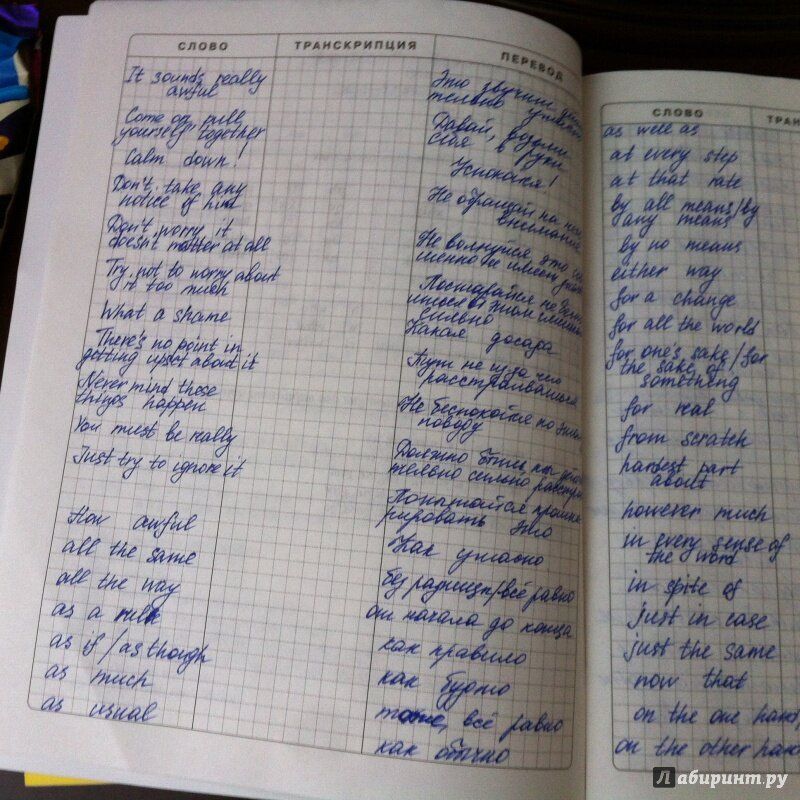 СЛОВО ТРАНСКРИПЦИЯ ПЕРЕВОД
It sounds really
awful
Come on, pull
yourself together
Calm down!
Don't take any
notice of him
Don't worry it
doesn't matter at all
Try not to worry about
it too much
What a shame
There's no point in
getting upset about it
Never mind these
things happen
You must be really
Just try to ignore it
How awful
all the same
all the way
as a rule
as if / as though
as much
as usual
Это звучит
тельно
Давай, возьми
себя в руки
Успокойся!
Не обращай на него
внимания
Не волнуйся это
Постарайся не
сильно
Какая досада
расстраиваться
Не беспокойся по этому
поводу
Должно быть, ты
тельно сильно
Попытайся
рировать это
Как ужасно
без разницы/всё равно
от начала до конца
как правило
как будто
тоже, всё равно
как обычно
СЛОВО ТРАН
as well as
at every step
at that rate
by all means/by
any means
by no means
either way
for a change
for all the world
for one's sake / for
the sake of
something
for real
from scratch
hardest part
about
however much
in every sense of
the word
in spite of
just in case
just the same
now that
on the one hand
on the other hand
Лабиринт.ру